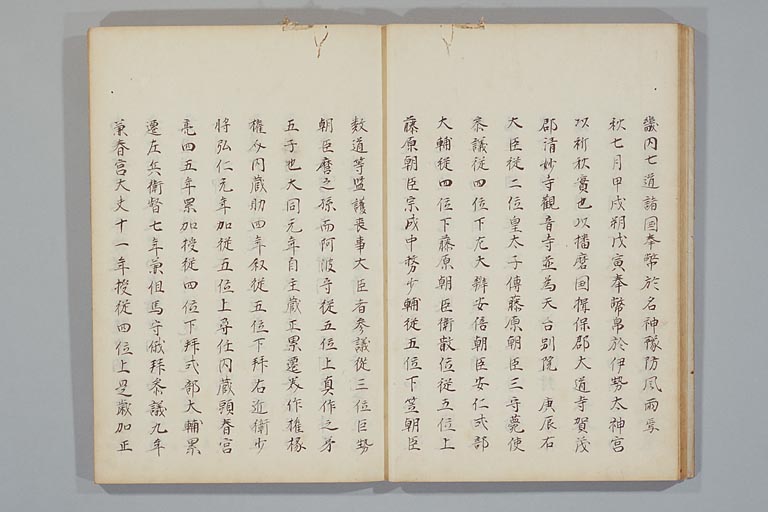 畿内七道諸国奉幣於名神豫防風雨豪
秋七月甲戌朔戊寅奉幣帛於伊勢太神宮
以祈秋實也以播磨国揖保郡大道寺賀茂
郡清妙寺觀音寺並為天台別院庚辰右
大臣從二位皇太子傅藤原朝臣三守薨使
叅議從四位下左大辨安倍朝臣安仁式部
大輔從四位下藤原朝臣衛散位從五位上
藤原朝臣宗成中務少輔從五位下笠朝臣
数道等監護喪事大臣者參議從三位巨勢
朝臣麿之孫而阿波守從五位上真作之第
五子也大同元年自主蔵正累遷美作権掾
権介内蔵助四年叙從五位下拜右近衛少
将弘仁元年加從五位上尋任内蔵頭春宮
亮四五年累加授從四位下拜式部大輔累
遷左兵衛督七年兼但馬守俄拜叅議九年
兼春宮大夫十一年授從四位上是歳加正